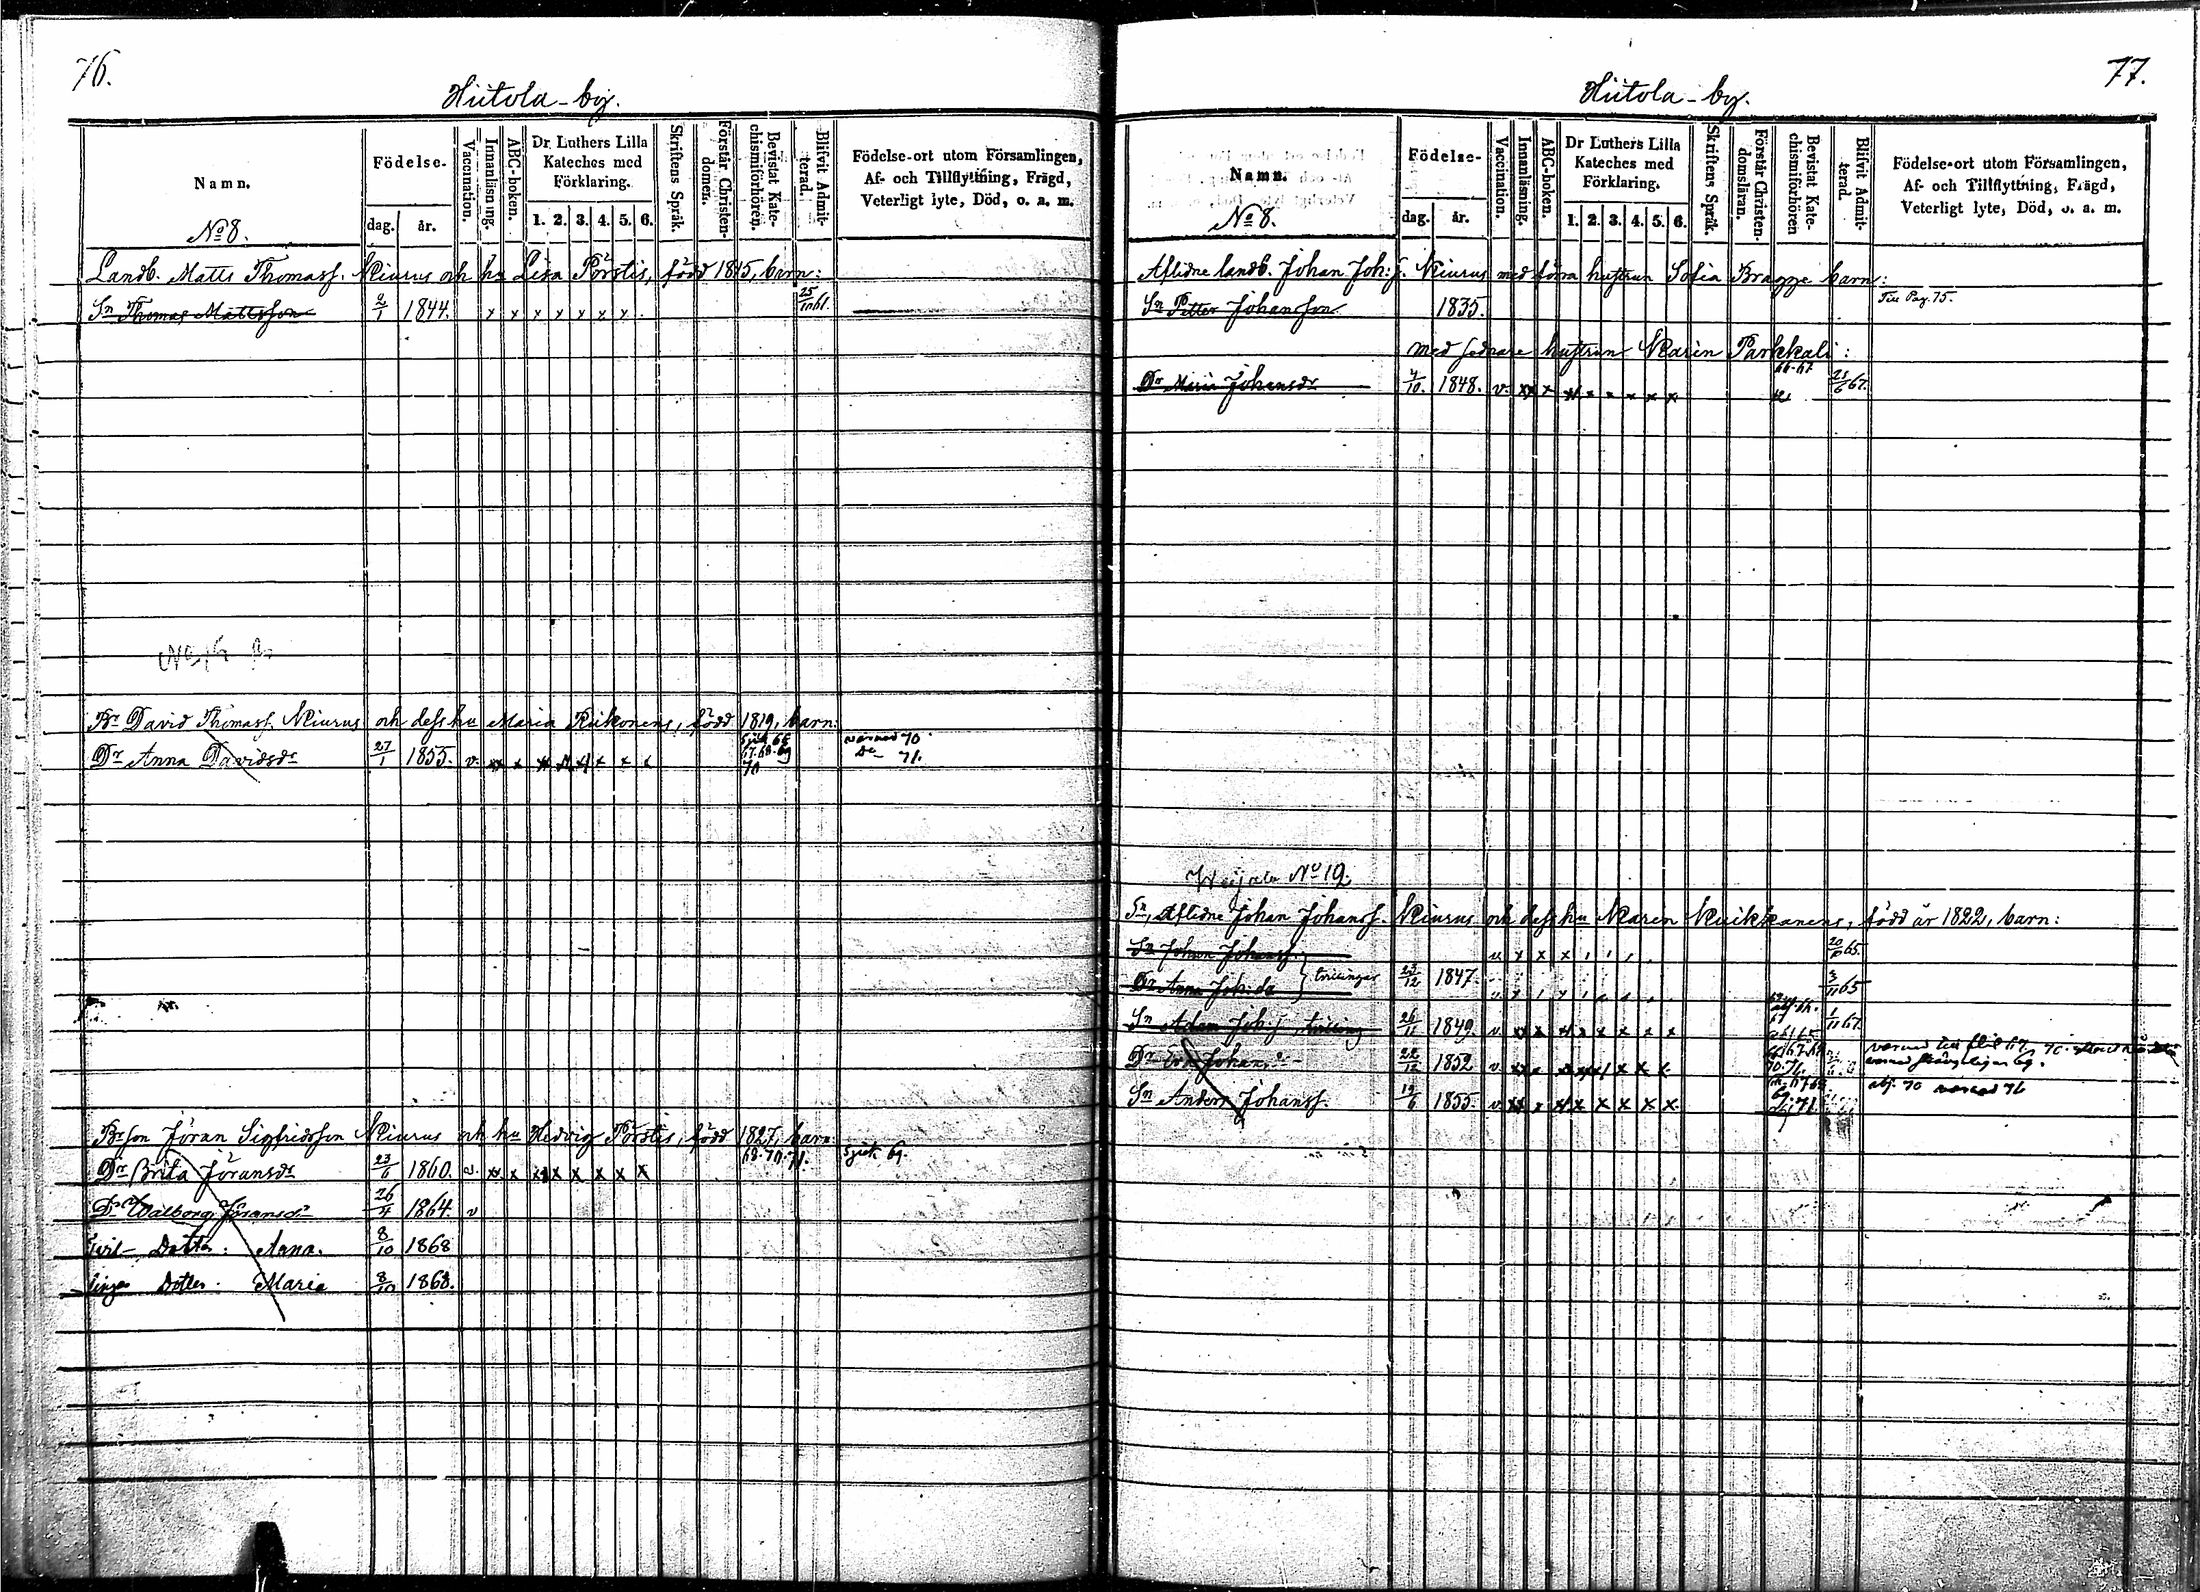 76.
Hiitola-by.
Namn.
Födelse-
dag. år.
Vaccination.
Innanläsning.
ABC-boken.
Dr. Luthers Lilla Kateches med Förklaring.
1. 2. 3. 4. 5. 6.
Skriftens Språk.
Förstår Christendomen.
Bevistat Katechismiförhören.
Blifvit Admitterad.
Födelse-ort utom Församlingen,
Af- och Tillflyttning, Frägd,
Veterligt lyte, Död, o. a. m.
No 8.
Landb. Matts Thomass. Kiurus och hu Lisa Pörstis, född 1815, barn:
Sn Thomas Mattsson 2/1 1844. x x x x x x x 25/10 61.
Br David Thomass. Kiurus och dess hu Maria Riikonens, född 1819, barn:
Dr Anna Davidsdr 27/1 1855. v. x x x x x x x x 67. 68. 69 70 70 71.
Brson Jöran Sigfridsson Kiurus och hu Hedvig Pörstis, född 1827, barn
Dr Brita Jöransdr 23/6 1860. v. x x x x x x x x 68. 70. 71. Sjuk 69.
Dr Walborg Jöransdr 26/4 1864. v
Tvil- Dotter: Anna. 8/10 1868
lingar Dotter: Maria 8/10 1868.
77.
Hiitola-by.
Namn.
Födelse-
dag. år.
Vaccination.
Innanläsning.
ABC-boken.
Dr Luthers Lilla Kateches med Förklaring.
1. 2. 3. 4. 5. 6.
Skriftens Språk.
Förstår Christendomsläran.
Bevistat Katechismiförhören
Blifvit Admitterad.
Födelse-ort utom Församlingen,
Af- och Tillflyttning, Frägd,
Veterligt lyte, Död, o. a. m.
No 8.
Aflidne landb. Johan Joh:s. Kiurus med förra hustrun Sofia Bragge barn:
Sn Petter Johansson 1835. Till Pag. 75.
med sednare hustrun Karin Parkkali:
Dr Maria Johansdr 7/10. 1848. v. x x x x x x x x 66-67 23/6 67.
No 12.
Sn, Aflidne Johan Johanss. Kiurus och dess hu Karen Kuikkanens, född år 1822, barn:
Sn Johan Johanss. v x x x 20/6 65.
Dr Anna Joh:dr } tvillingar 23/12 1847. 3/11 65
Sn Adam Joh:s 26/11 1849. v. x x x x x x x x 67 1/11 67.
Dr Johans 22/12 1852 v. x x x x x x x x 70. 71.
Sn Anders Johanss. 19/6 1855. v. x x x x x x x x 71. 70 71